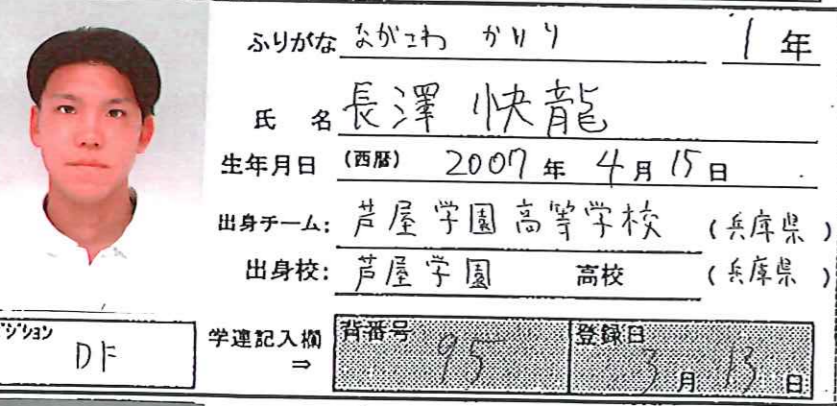 ふりがな ながさわ かいり 1年
氏 名 長澤 快龍
生年月日 (西暦) 2007年 4月 15日
出身チーム: 芦屋学園高等学校 (兵庫県)
出身校: 芦屋学園 高校 (兵庫県)
ポジション DF
学連記入欄 ⇒ 背番号 95 登録日 3月 13日